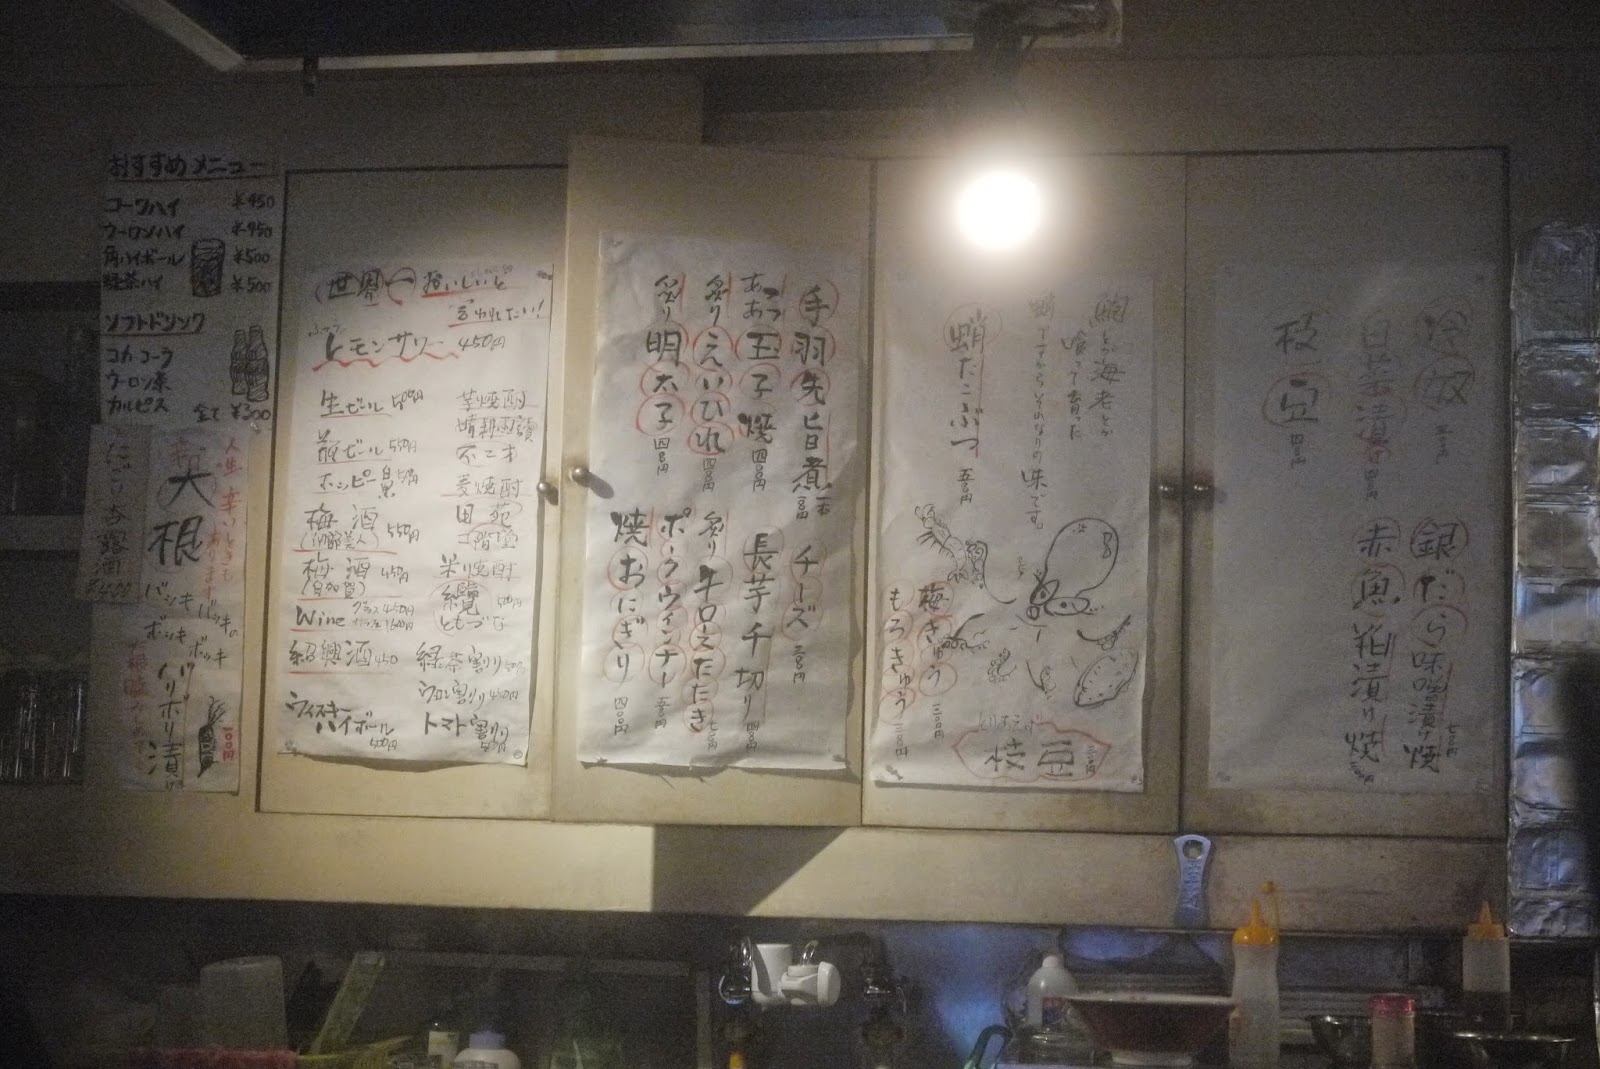 おすすめメニュー
コーワハイ ¥450
ウーロンハイ ¥450
角ハイボール ¥500
緑茶ハイ ¥500
ソフトドリンク
コカコーラ
ウーロン茶
カルピス 全て ¥300
杏露酒
¥400
人生辛いときも
あります!
大根
バッキバッキの
ボッキボッキ
バリボリ漬け
100円
世界一おいしいと
言われてたい!
レモンサワー 450円
生ビール 500円
瓶ビール 550円
ホッピー黒
梅酒 550円
梅酒 450円
(自加賀)
Wine グラス 450円
紹興酒 450
ウィスキーハイボール 500円
芋焼酎
不二才
麦焼酎
田苑
二階堂
米焼酎
ともづな
緑茶割り
ウーロン割り 450円
トマト割り 500円
手羽先旨煮 一本
あつあつ玉子焼 四〇〇円
炙りえいひれ 四〇〇円
炙り明太子 四〇〇円
チーズ 三〇〇円
長芋千切り 四〇〇円
炙り牛口えたたき 七〇〇円
ポークウィンナー 五〇〇円
焼おにぎり 四〇〇円
鯛とか海老とか
喰って育った
蛸ですからそれなりの味です。
蛸たこぶつ 五〇〇円
梅きゅう 三〇〇円
もろきゅう 三〇〇円
とりあえず
枝豆 三〇〇円
冷奴 三〇〇円
白菜漬
枝豆 四〇〇円
銀だら味噌漬け焼 七〇〇円
赤魚粕漬け焼